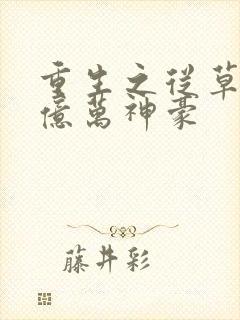 重生之從草
億萬神豪
藤井彩